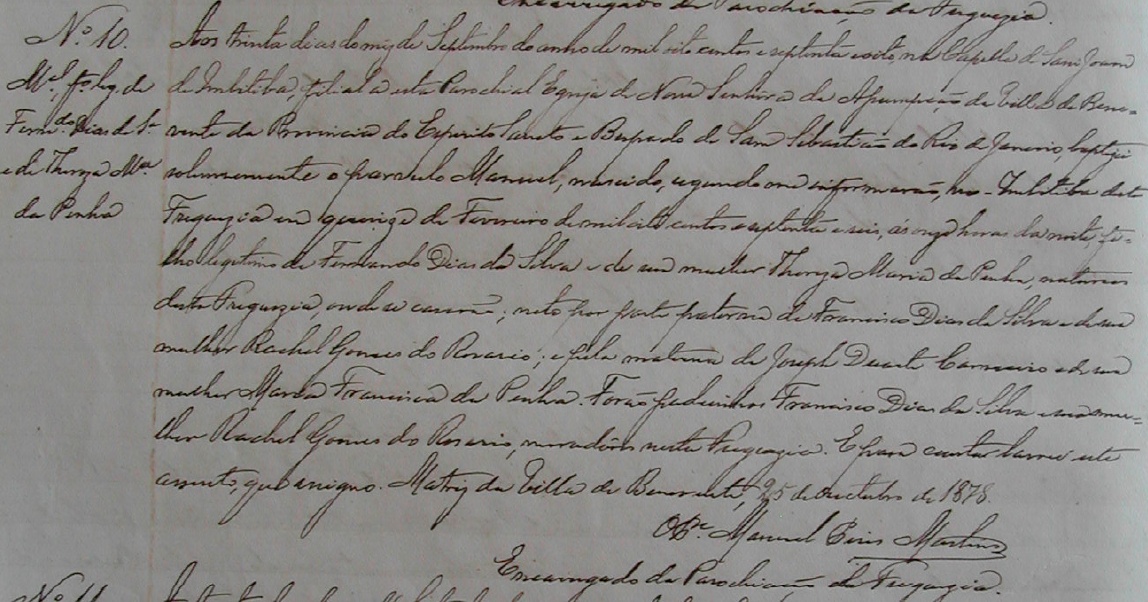 Encarregado da Parochiação da Freguezia.
Nº 10.
Mel, fº leg. de
Ferndo Dias da Sª
e de Thereza Mª
da Penha
Aos trinta dias do mez de Septembro do anno de mil oito centos e septenta e oito, na Capella de Sam Joam
de Imbitiba, filial a esta Parochial Egreja de Nossa Senhora da Assumpção da Villa de Bene=
vente da Provincia do Espirito Sancto e Bispado de Sam Sebastião do Rio de Janeiro, baptizei
solemnemente o parvulo Manuel, nascido, segundo me informarão, no Imbitiba desta
Freguezia em quinze de Fevereiro de mil oito centos e septenta e seis, ás onze horas da noite, fi=
lho legitimo de Fernando Dias da Silva e de sua mulher Thereza Maria da Penha, naturaes
desta Freguezia, onde se casarão; neto por parte paterna de Francisco Dias da Silva e de sua
mulher Rachel Gomes do Rosario; e pela materna de Joseph Duarte Carneiro e de sua
mulher Maria Francisca da Penha. Forão padrinhos Francisco Dias da Silva e sua mu=
lher Rachel Gomes do Rosario, moradores nesta Freguezia. E para constar lavrei este
assento, que assigno. Matriz da Villa de Benevente, 25 de Outubro de 1878.
O Pe. Manuel Pires Martins
Encarregado da Parochiação da Freguezia.
Nº 11.